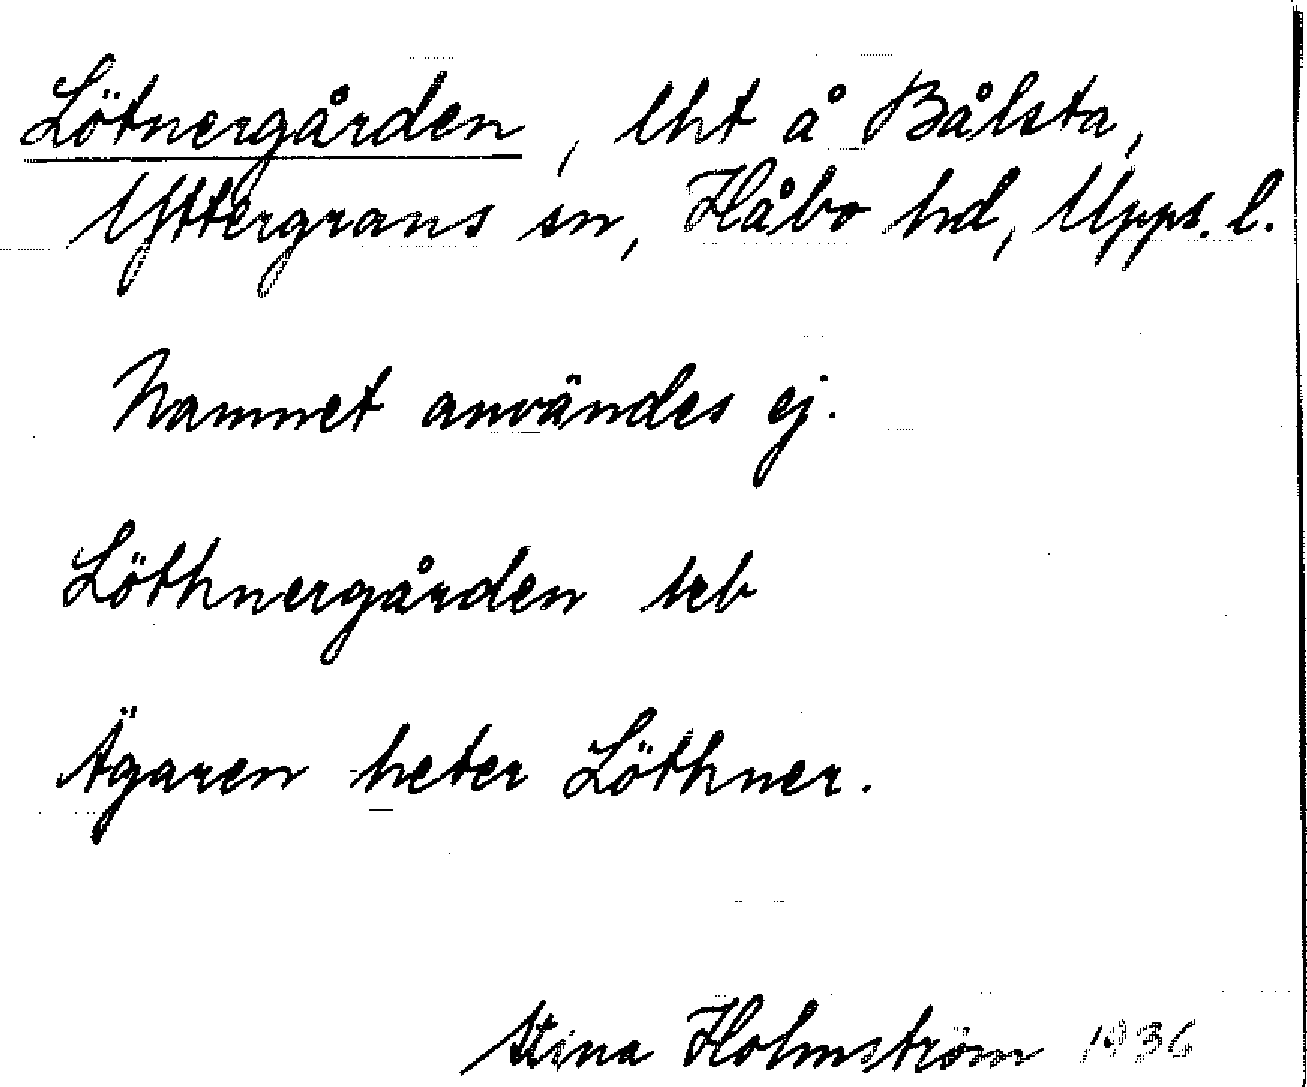 Lötnergården, lht å Bålsta,
Yttergrans sn, Håbo hd, Upps. l.
Namnet användes ej.
Löthnergården hrb
Ägaren heter Löthner.
Stina Holmström 1936